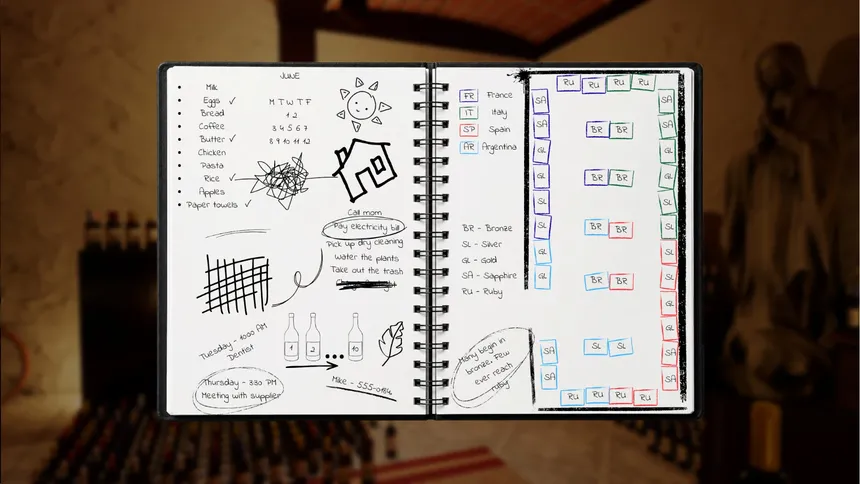 JUNE
Milk
Eggs
Bread
Coffee
Butter
Chicken
Pasta
Rice
Apples
Paper towels
M T W T F
1 2
3 4 5 6 7
8 9 10 11 12
Call mom
Pay electricity bill
Pick up dry cleaning
Water the plants
Take out the trash
1 2 10
Tuesday - 1000 AM
Dentist
Thursday - 330 PM
Meeting with supplier
Mike -
FR France
IT Italy
SP Spain
AR Argentina
BR - Bronze
SL - Silver
GL - Gold
SA - Sapphire
RU - Ruby
Many begin in
bronze. Few
ever reach
ruby
RU RU RU RU
SA SA
SA BR BR SA
GL GL
GL BR BR GL
SL SL
SL BR BR SL
GL SL
GL BR BR SL
GL
GL
SA SL SL SA
SA SA
RU RU RU RU